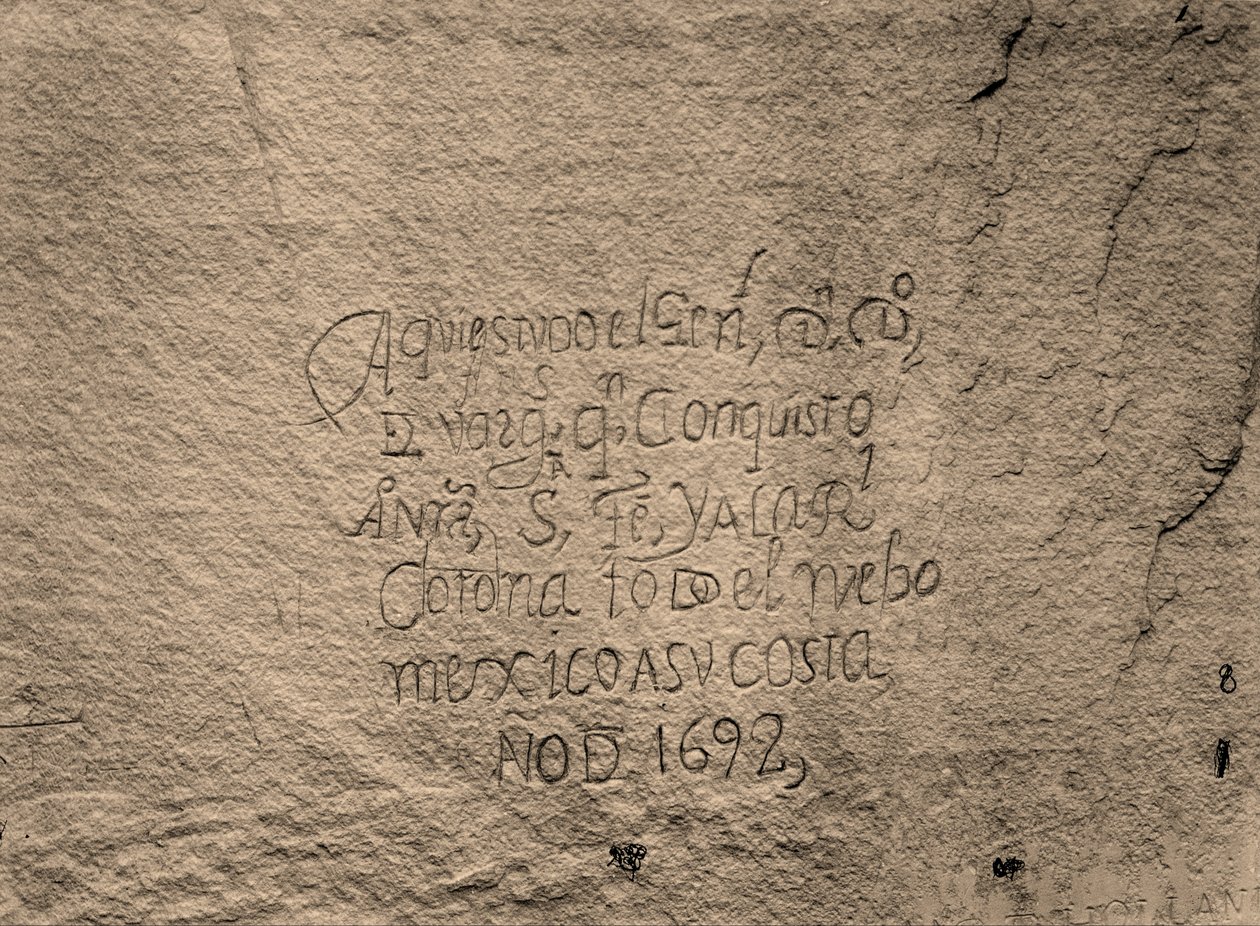 Aquiestudo el Genl, Dn Do,
De vargs, qn, Conquisto
a Nra, Sa, Fe, Y a la Rl
Corona todo el nuebo
mexico a su costa
Año D 1692,
8